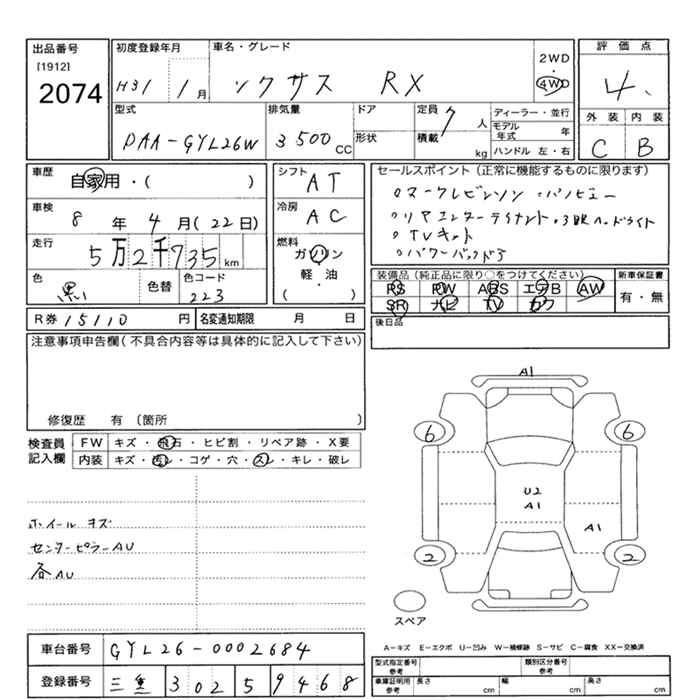 出品番号
[1912]
2074
初度登録年月
H31 1月
車名・グレード
レクサス RX
2WD
4WD
評価点
4.
外装 内装
C B
型式
DAA-GYL26W
排気量
3500CC
ドア
形状
定員 人
積載 kg
ディーラー・並行
モデル年式 年
ハンドル 左・右
車歴
自家用・( )
車検
8年4月(22日)
走行
5万2千735km
色
黒
色替
色コード
223
シフト
AT
冷房
AC
燃料
ガソリン
軽・油
( )
セールスポイント(正常に機能するものに限ります)
○マークレビンソン ・パノビュー
○リアエンターテイメント ○3眼ヘッドライト
○TVキット
○パワーバックドア
装備品(純正品に限り○をつけてください)
PS PW ABS エアB AW
SR ナビ TV カワ
新車保証書
有・無
後日品
R券 15110円
名変通知期限 月 日
注意事項申告欄(不具合内容等は具体的に記入して下さい)
修復歴 有 〔箇所 〕
検査員
記入欄
FW キズ・飛石・ヒビ割・リペア跡・X要
内装 キズ・汚レ・コゲ・穴・スレ・キレ・破レ
ホイールキズ
センターピラーAU
各AU
A1
6 6
U2
A1
A1
2 2
スペア
A=キズ E=エクボ U=凹み W=補修跡 S=サビ C=腐食 XX=交換済
車台番号 GYL26-0002684
登録番号 三重 302 5 9468
型式指定番号
参考
類別区分番号
参考
車庫証明用
参考
長さ cm 幅 cm 高さ cm